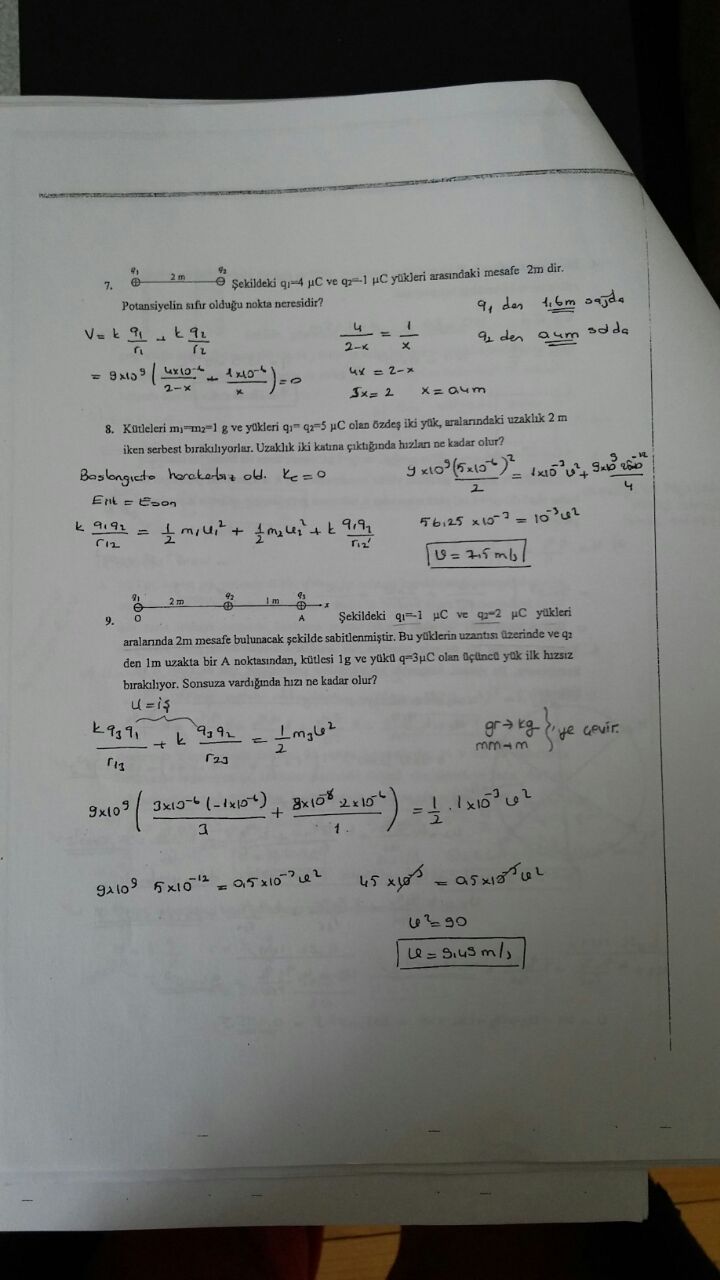 q₁ q₂
2 m
7. Şekildeki q₁=4 µC ve q₂=-1 µC yükleri arasındaki mesafe 2m dir.
Potansiyelin sıfır olduğu nokta neresidir?
q₁ den 1,6m sağda
q₂ den 0,4m solda
V = k q₁/r₁ + k q₂/r₂
4/(2-x) = 1/x
= 9x10⁹ (4x10⁻⁶/(2-x) + 1x10⁻⁶/x) = 0
4x = 2-x
5x = 2 x = 0,4m
8. Kütleleri m₁=m₂=1 g ve yükleri q₁= q₂=5 µC olan özdeş iki yük, aralarındaki uzaklık 2 m
iken serbest bırakılıyorlar. Uzaklık iki katına çıktığında hızları ne kadar olur?
Başlangıçta hareketsiz old. = 0
9x10⁹ (5x10⁻⁶)²/2 = 1x10⁻³ v² + 9x10⁹ 10⁻¹²/4
Eilk = Eson
k q₁q₂/r₁₂ = 1/2 m₁v₁² + 1/2 m₂v₂² + k q₁q₂/r₁₂'
56,25 x10⁻³ = 10⁻³v²
v = 7,5 m/s
q₁ q₂ q₃
2 m 1 m x
O A
9. Şekildeki q₁=-1 µC ve q₂=2 µC yükleri
aralarında 2m mesafe bulunacak şekilde sabitlenmiştir. Bu yüklerin uzantısı üzerinde ve q₂
den 1m uzakta bir A noktasından, kütlesi 1g ve yükü q=3µC olan üçüncü yük ilk hızsız
bırakılıyor. Sonsuza vardığında hızı ne kadar olur?
U = iş
k q₃q₁/r₁₃ + k q₃q₂/r₂₃ = 1/2 m₃v²
gr→kg
mm→m } 'ye çevir.
9x10⁹ (3x10⁻⁶ (-1x10⁻⁶)/3 + 3x10⁻⁶ 2x10⁻⁶/1) = 1/2 . 1x10⁻³ v²
9x10⁹ 5x10⁻¹² = 0,5x10⁻³ v² 45 x10⁻³ = 0,5x10⁻³ v²
v² = 90
v = 9,49 m/s